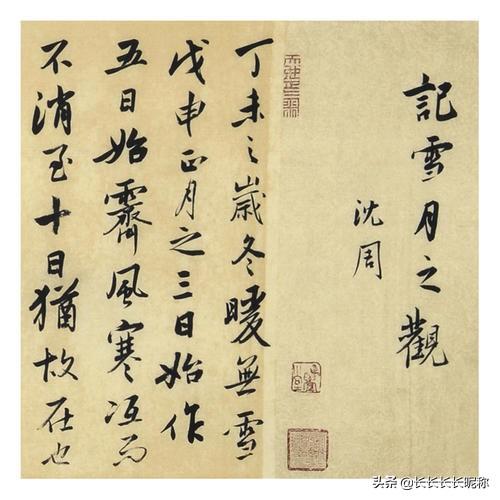 記雪月之觀
沈周
丁未之歲冬暖無雪
戊申正月之三日始作
五日始霽風寒冱而
不消至十日猶故在也
头条 @长长长长昵称